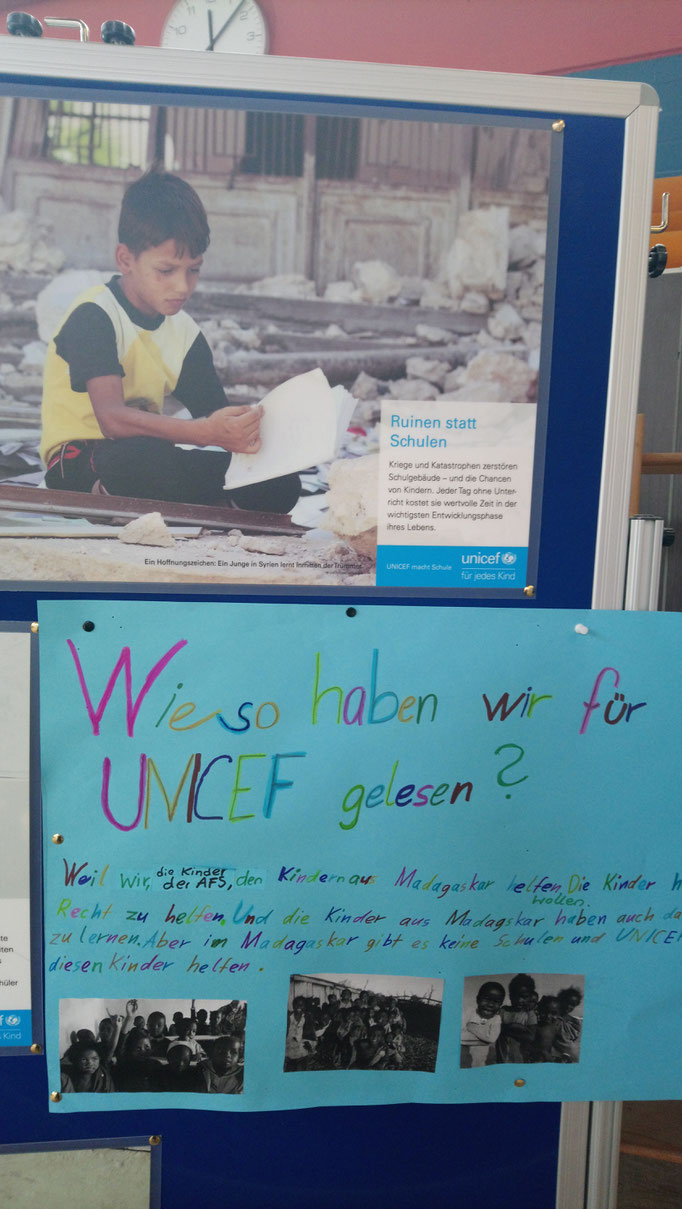 Ruinen statt
Schulen
Kriege und Katastrophen zerstören
Schulgebäude – und die Chancen
von Kindern. Jeder Tag ohne Unter-
richt kostet sie wertvolle Zeit in der
wichtigsten Entwicklungsphase
ihres Lebens.
Ein Hoffnungszeichen: Ein Junge in Syrien lernt inmitten der Trümmer.
UNICEF macht Schule
unicef
für jedes Kind
Wieso haben wir für
UNICEF gelesen?
Weil wir, die Kinder der AFS, den Kindern aus Madagaskar helfen wollen. Die Kinder h
Recht zu helfen. Und die Kinder aus Madagskar haben auch da
zu lernen. Aber im Madagaskar gibt es keine Schulen und UNICEF
diesen Kinder helfen.
te
iten
s
hüler
ef
s Kind